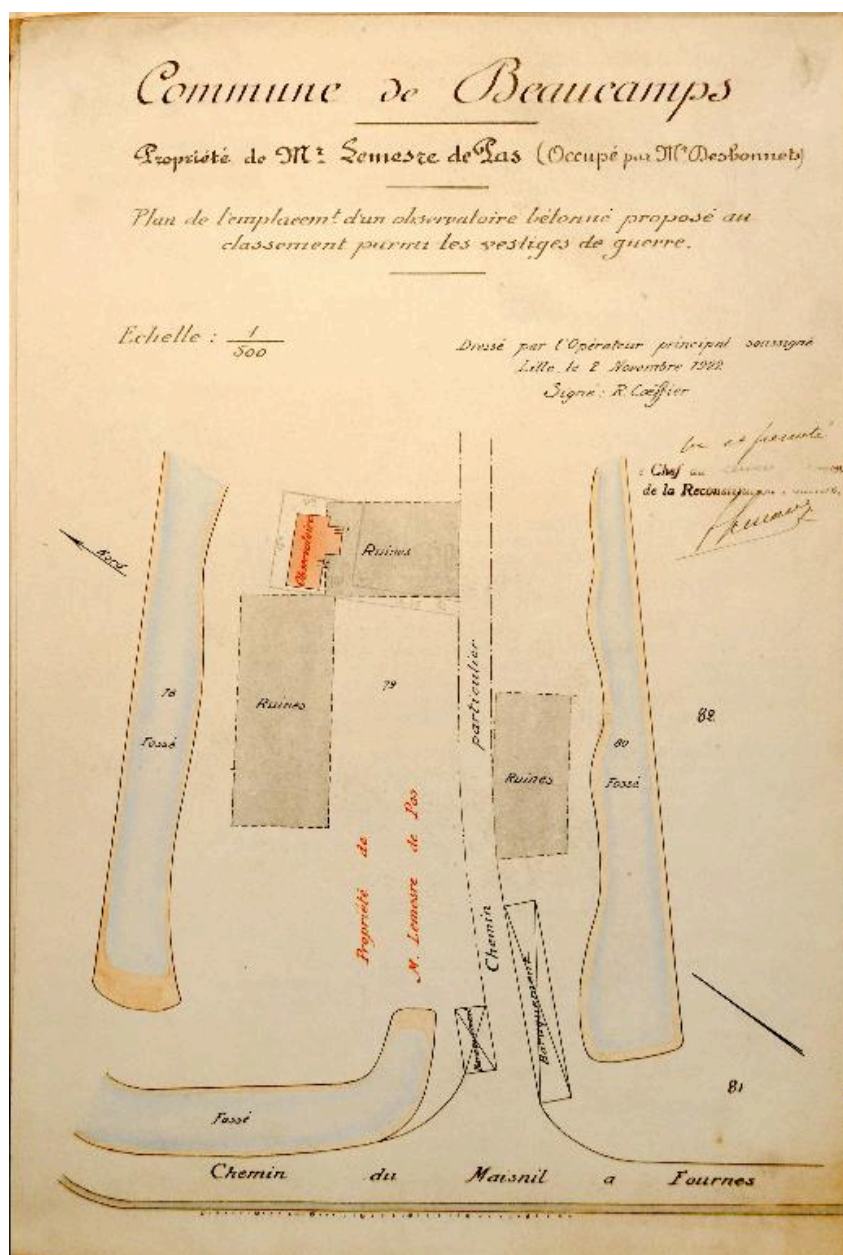 Commune de Beaucamps
Propriété de Mr Lemesre de Pas (Occupé par Mr Desbonnets)
Plan de l'emplacemt. d'un observatoire bétonné proposé au
classement parmi les vestiges de guerre.
Echelle : 1/500
Dressé par l'Opérateur principal soussigné
Lille, le 2 Novembre 1922
Signé : R. Coëffier
Chef
de la Reconstitution
Nord
Observatoire
Ruines
78
Fossé
Ruines
79
particulier
Ruines
80
Fossé
82
Propriété de
M. Lemesre de Pas
Chemin
Baraquement
Baraquement
81
Fossé
Chemin du Maisnil a Fournes